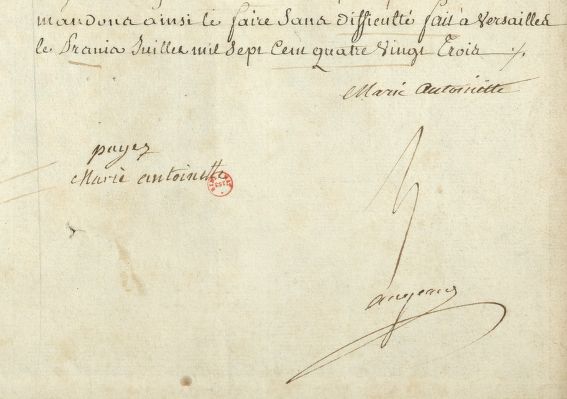 mandons ainsi le faire Sans difficulté fait a Versailles
le Premier Juillet mil Sept Cent quatre Vingt Trois
Marie Antoinette
payez
Marie antoinette
augeard